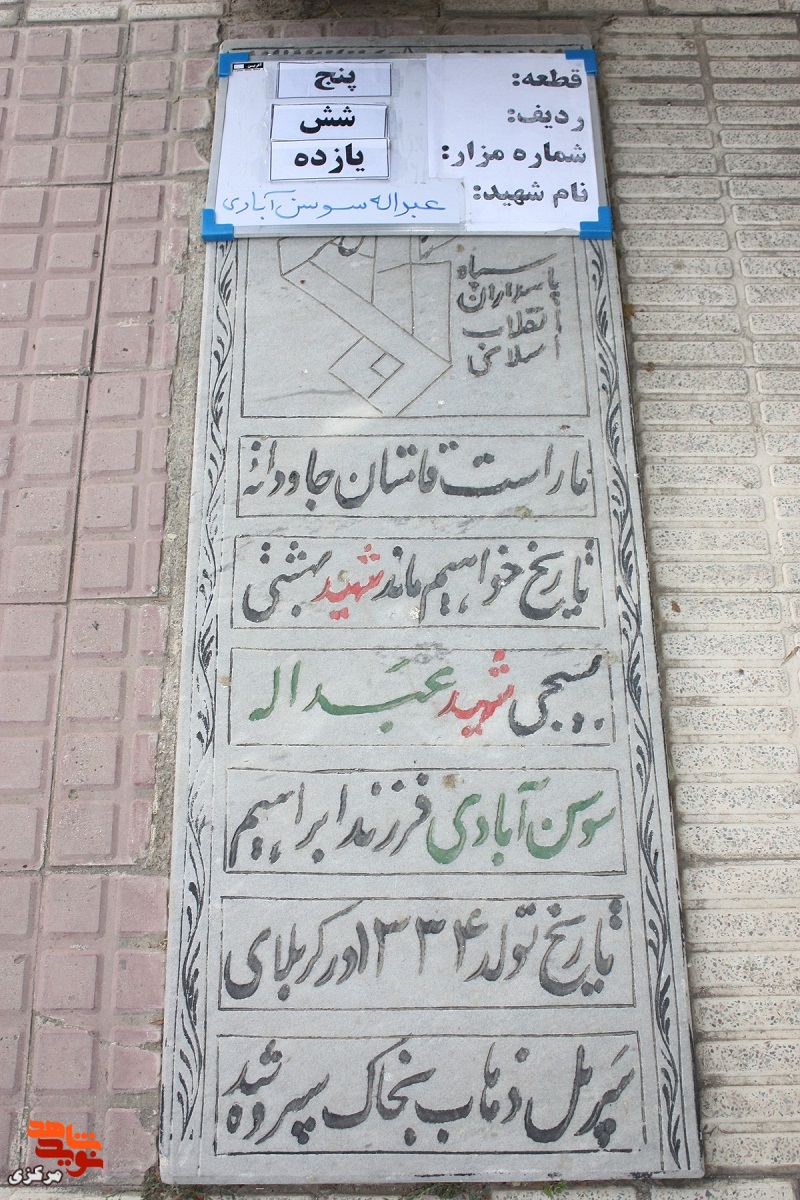 قطعه: پنج
ردیف: شش
شماره مزار: یازده
نام شهید: عبداله سوسن آبادی
سپاه
پاسداران
انقلاب
اسلامی
ما راست قامتان جاودانهٔ
تاریخ خواهیم ماند شهید بهشتی
بسیجی شهید عبداله
سوسن آبادی فرزند ابراهیم
تاریخ تولد ۱۳۳۴ در کربلای
سَرپل ذهاب بخاک سپرده شد
نوید شاهد
مرکزی